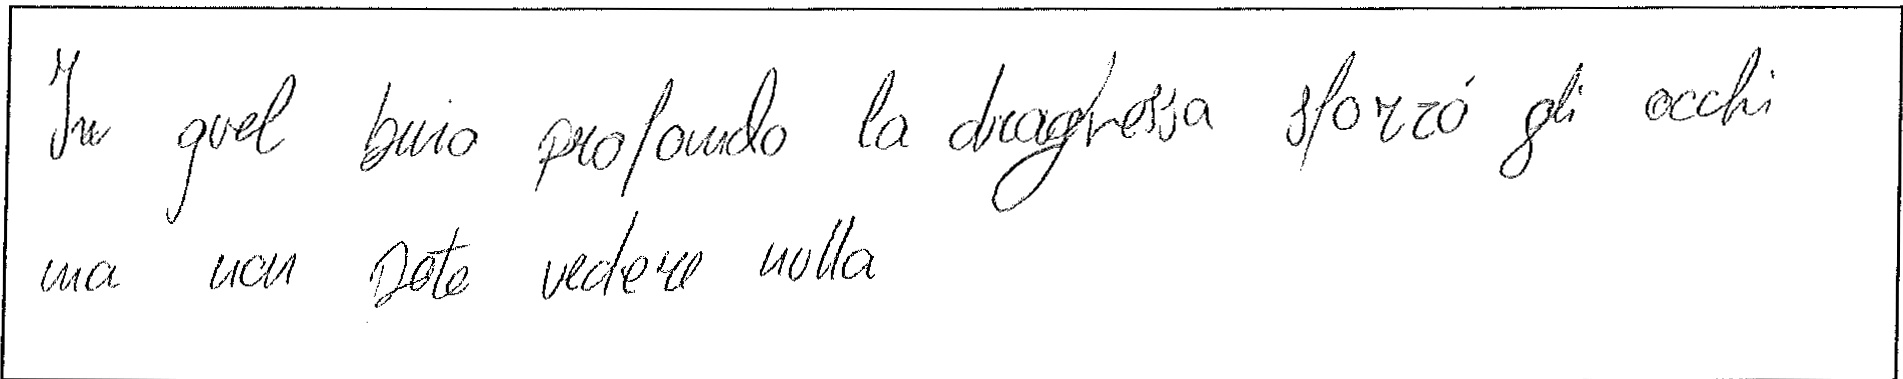 In quel buio profondo la draghessa sforzó gli occhi
ma non pote vedere nulla